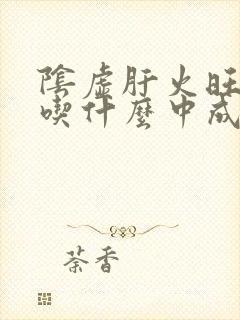 陰虛肝火旺
喫什麼中成
荼香